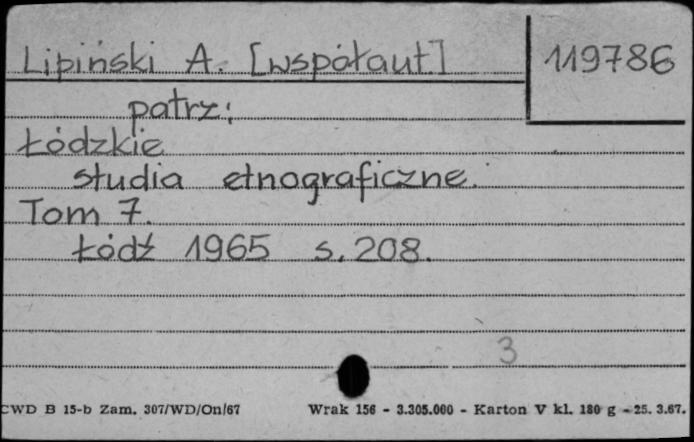 Lipiński A. [współaut.] 119786
patrz:
Łódzkie
studia etnograficzne.
Tom 7.
Łódź 1965 s. 208.
3
CWD B 15-b Zam. 307/WD/On/67 Wrak 156 - 3.305.000 - Karton V kl. 180 g - 25. 3.67.